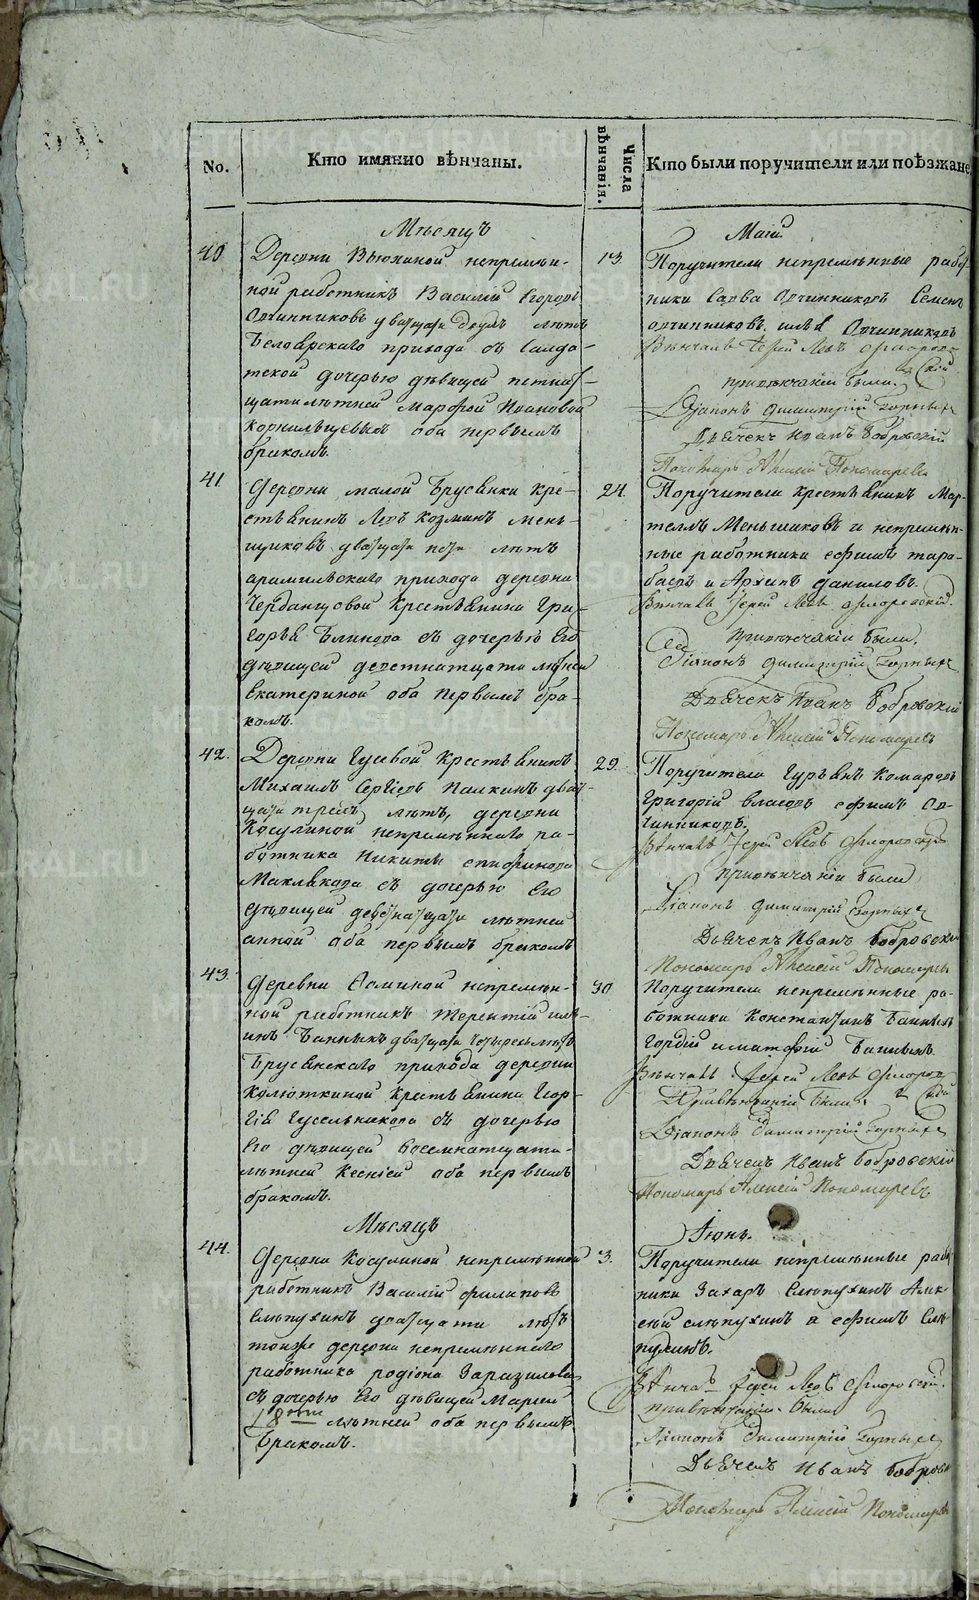 No.
Кто имянно вѣнчаны.
Числа вѣнчанія.
Кто были поручители или поѣзжане
Мѣсяцъ
Маій
40
Деревни Вьюхиной непремѣн-
ной работникъ Василій Егоровъ
Овчинниковъ дватцати двухъ лѣтъ
Белоярскаго прихода съ Салда-
тской дочерью дѣвицей петнат-
цатилѣтней Марфой Ивановой
Корнильцевыхъ оба первымъ
бракомъ.
13
Поручители непремѣнные рабо-
ники Савва Овчинниковъ Семенъ
овчинниковъ илья Овчинниковъ
Вѣнчалъ Іерей Левъ Флоров-
ской
при вѣнчаніи были.
Діаконъ Димитрій Горныхъ
Дьячекъ Иванъ Бобровскій
Пономарь Алексій Пономаревъ
41.
Деревни малой Брусянки кре-
стьянинъ Левъ Козминъ мень-
щиковъ дватцати лѣтъ
арамильскаго прихода деревни
Чердынцовой Крестьянина Гри-
горья Блинова съ дочерью Его
дѣвицей деветнатцати лѣтней
Екатериной оба первымъ бра-
комъ.
24.
Поручители крестьянинъ Мар-
темъ Меньшиковъ и непремѣн-
ные работники ефимъ тара-
басвъ и Архипъ даниловъ.
Вѣнчалъ Іерей Левъ Флоровскій.
При вѣнчаніи были.
Діаконъ Димитрій Горныхъ
Дьячекъ Иванъ Бобровскій
Пономарь Алексій Пономаревъ
42.
Деревни Гусевой Крестьянинъ
Михаилъ Сергіевъ Палкинъ дват-
цати трехъ лѣтъ, деревни
Косулиной непремѣннаго ра-
ботника Никиты епифанова
Маклакова съ дочерью Его
дѣвицей девѣтнатцати лѣтней
анной оба первымъ бракомъ
29.
Поручители Гурьянъ комаровъ
Григорій власовъ ефимъ Ов-
чинниковъ.
Вѣнчалъ Іерей Левъ Флоровскій
при вѣнчаніи были
Діаконъ Димитрій Горныхъ
Дьячекъ Иванъ Бобровскій
Пономарь Алексій Пономаревъ
43.
Деревни Фоминой непремѣн-
ной работникъ терентій иль-
инъ Банныхъ дватцати четырехъ лѣтъ
Брусянскаго прихода деревни
Колюткиной Крестьянина Геор-
гія Гусельникова съ дочерью
Его дѣвицей восемнатцати-
лѣтней Ксеніей оба первымъ
бракомъ.
30
Поручители непремѣнные ра-
ботники Константинъ Банныхъ
Гордій и матфій Банныхъ.
Вѣнчалъ Іерей Левъ Флоров
ской
При вѣнчаніи были.
Діаконъ Димитрій Горныхъ
Дьячекъ Иванъ Бобровскій
Пономарь Алексій Пономаревъ
Мѣсяцъ
Іюнь.
44.
Деревни Косулиной непремѣнной
работникъ Василій филиповъ
Слѣпухинъ дватцати лѣтъ
тойже деревни непремѣннаго
работника родіона Заразилова
съ дочерью Его дѣвицей Маріей
18 лѣтней оба первымъ
Бракомъ.
3.
Поручители непремѣнные рабо
ники Захаръ Слѣпухинъ Алек-
сѣй слѣпухинъ и ефимъ Слѣ-
пухинъ.
Вѣнчалъ Іерей Левъ Флоровскій.
при вѣнчаніи были
Діаконъ Димитрій Горныхъ
Дьячекъ Иванъ Бобровск
Пономарь Алексій Пономаревъ